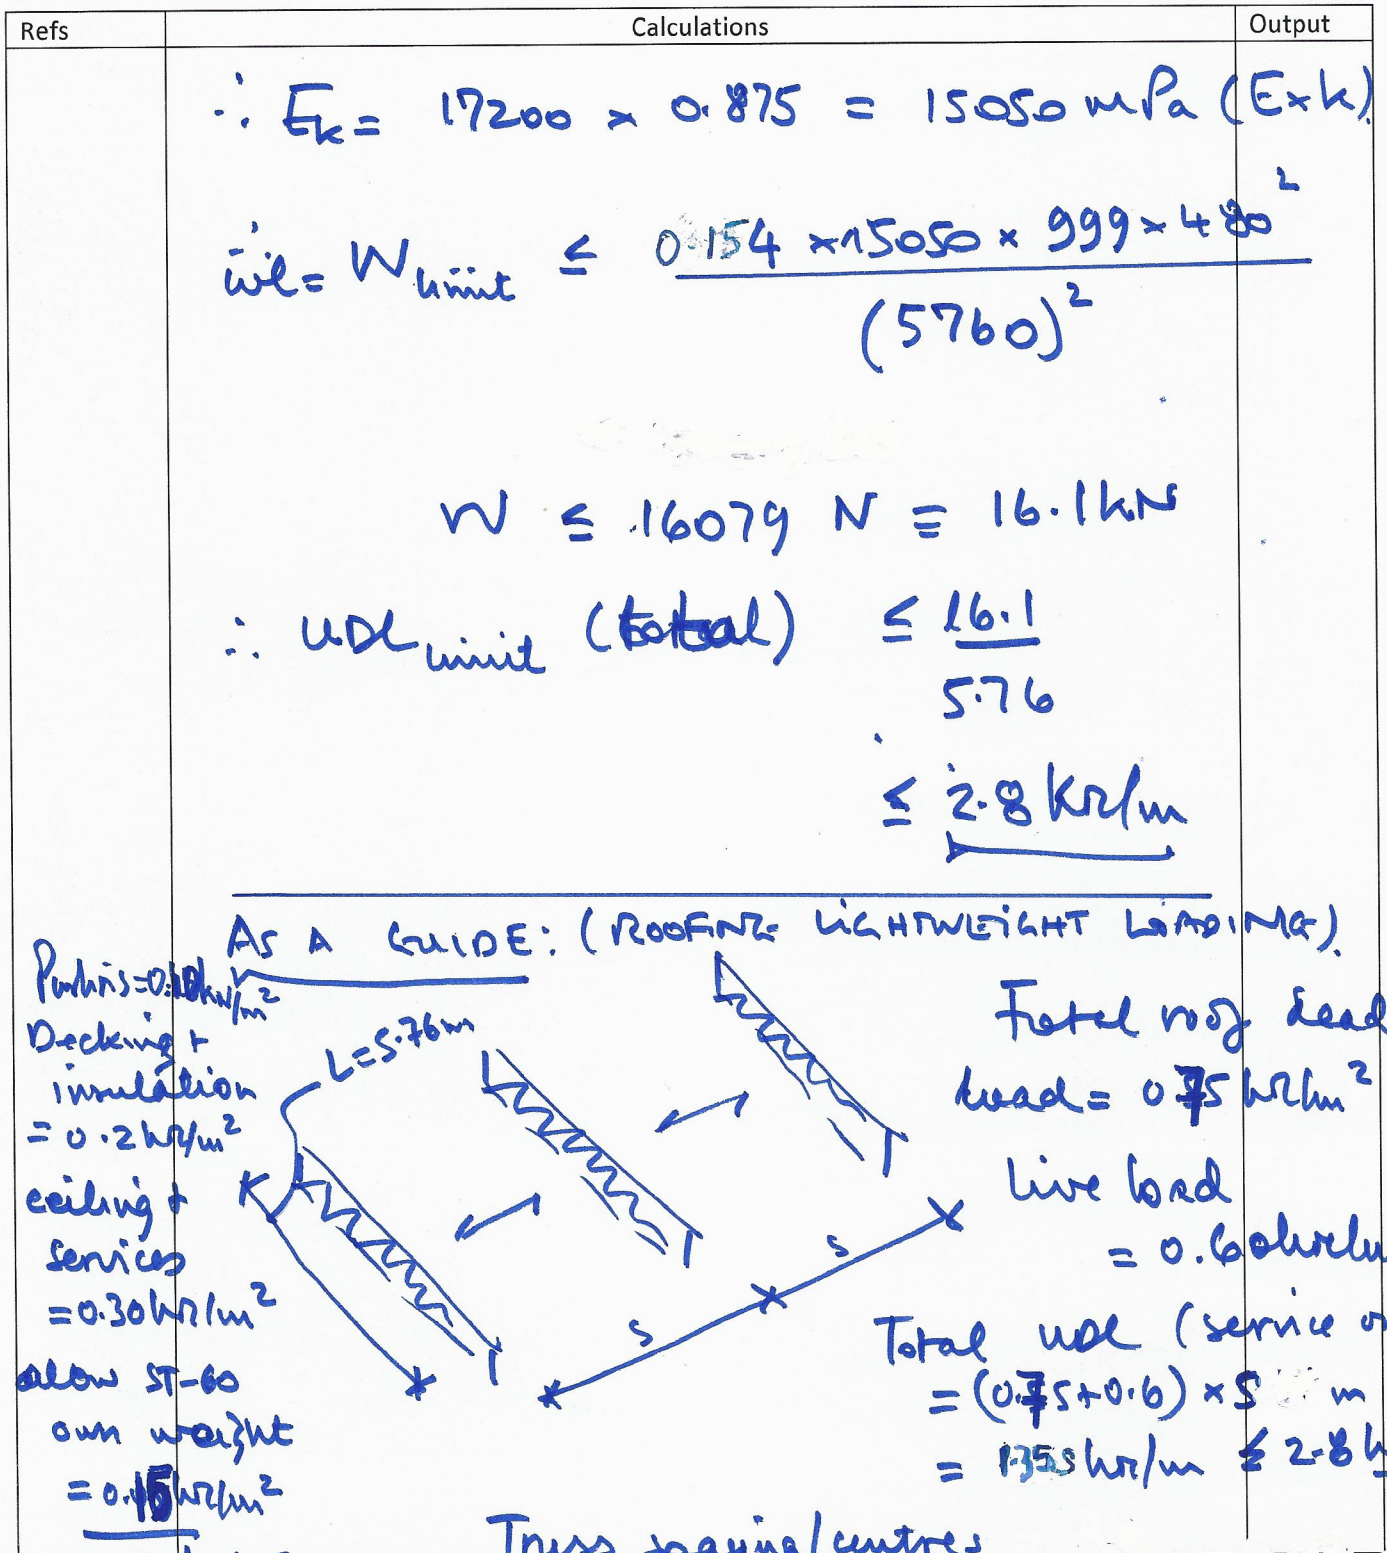 Refs
Calculations
Output
∴ Ek = 17200 × 0.875 = 15050 mPa (Exk)
ie = W limit ≤ 0.154 × 15050 × 999 × 480²
(5760)²
W ≤ 16079 N = 16.1 kN
∴ UDL limit (total) ≤ 16.1
5.76
≤ 2.8 kN/m
AS A GUIDE: (ROOFING LIGHTWEIGHT LOADING).
Purlins = kN/m²
Decking +
insulation
= 0.2 kN/m²
ceiling +
services
= 0.30 kN/m²
allow ST-60
own weight
= 0.15 kN/m²
L = 5.76m
s
s
Total roof dead
load = 0.75 kN/m²
Live load
= 0.60 kN/m
Total UDL (service
= (0.75+0.6) × S m
= 1.35S kN/m ≤ 2.8 k
Truss spacing/centres